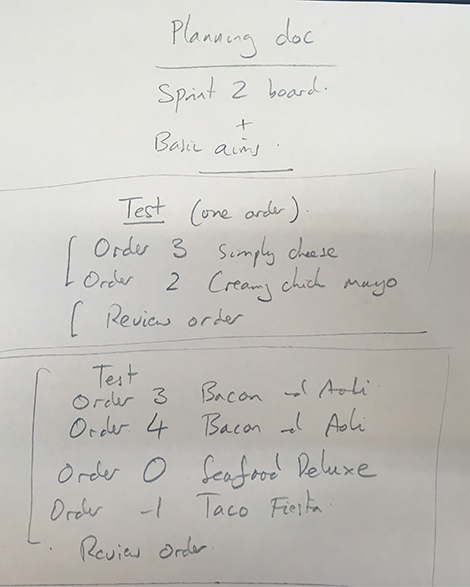 Planning doc
Sprint 2 board.
+
Basic aims.
Test (one order).
Order 3 Simply cheese
Order 2 Creamy chick mayo
Review order
Test
Order 3 Bacon Aoli
Order 4 Bacon Aoli
Order 0 Seafood Deluxe
Order -1 Taco Fiesta.
Review order.